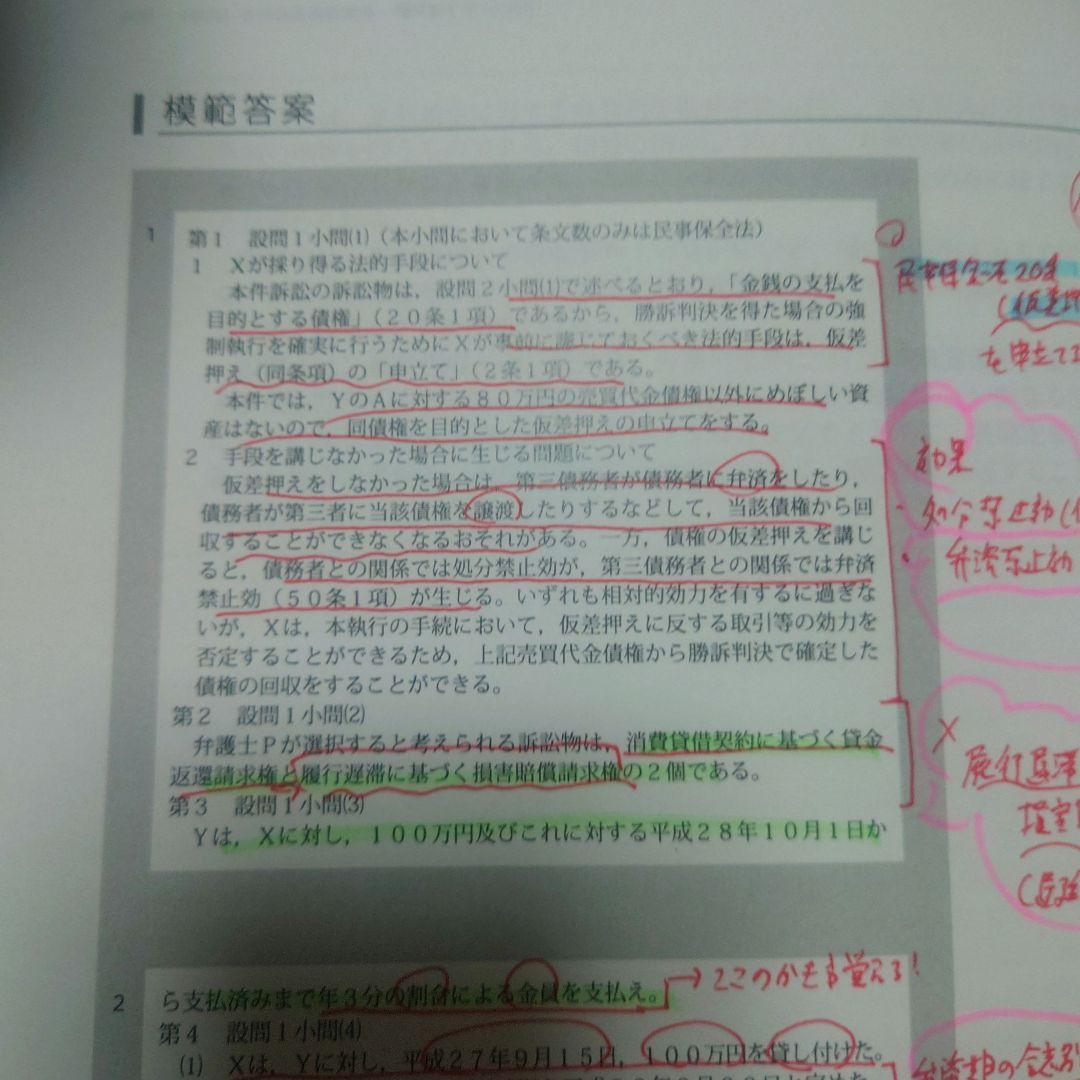 模範答案
1
第1 設問1小問⑴（本小問において条文数のみは民事保全法）
1 Xが採り得る法的手段について
本件訴訟の訴訟物は，設問2小問⑴で述べるとおり，「金銭の支払を
目的とする債権」（20条1項）であるから，勝訴判決を得た場合の強
制執行を確実に行うためにXが事前に講じておくべき法的手段は，仮差
押え（同条項）の「申立て」（2条1項）である。
本件では，YのAに対する80万円の売買代金債権以外にめぼしい資
産はないので，同債権を目的とした仮差押えの申立てをする。
2 手段を講じなかった場合に生じる問題について
仮差押えをしなかった場合は，第三債務者が債務者に弁済をしたり，
債務者が第三者に当該債権を譲渡したりするなどして，当該債権から回
収することができなくなるおそれがある。一方，債権の仮差押えを講じ
ると，債務者との関係では処分禁止効が，第三債務者との関係では弁済
禁止効（50条1項）が生じる。いずれも相対的効力を有するに過ぎな
いが，Xは，本執行の手続において，仮差押えに反する取引等の効力を
否定することができるため，上記売買代金債権から勝訴判決で確定した
債権の回収をすることができる。
第2 設問1小問⑵
弁護士Pが選択すると考えられる訴訟物は，消費貸借契約に基づく貸金
返還請求権と履行遅滞に基づく損害賠償請求権の2個である。
第3 設問1小問⑶
Yは，Xに対し，100万円及びこれに対する平成28年10月1日か
2
ら支払済みまで年3分の割合による金員を支払え。
→ここのかきも覚える！
第4 設問1小問⑷
(1) Xは，Yに対し，平成27年9月15日，100万円を貸し付けた。
民事保全法20条
(仮差押
を申立て
効果
・処分禁止効(
・弁済禁止効
X
履行遅滞
損害